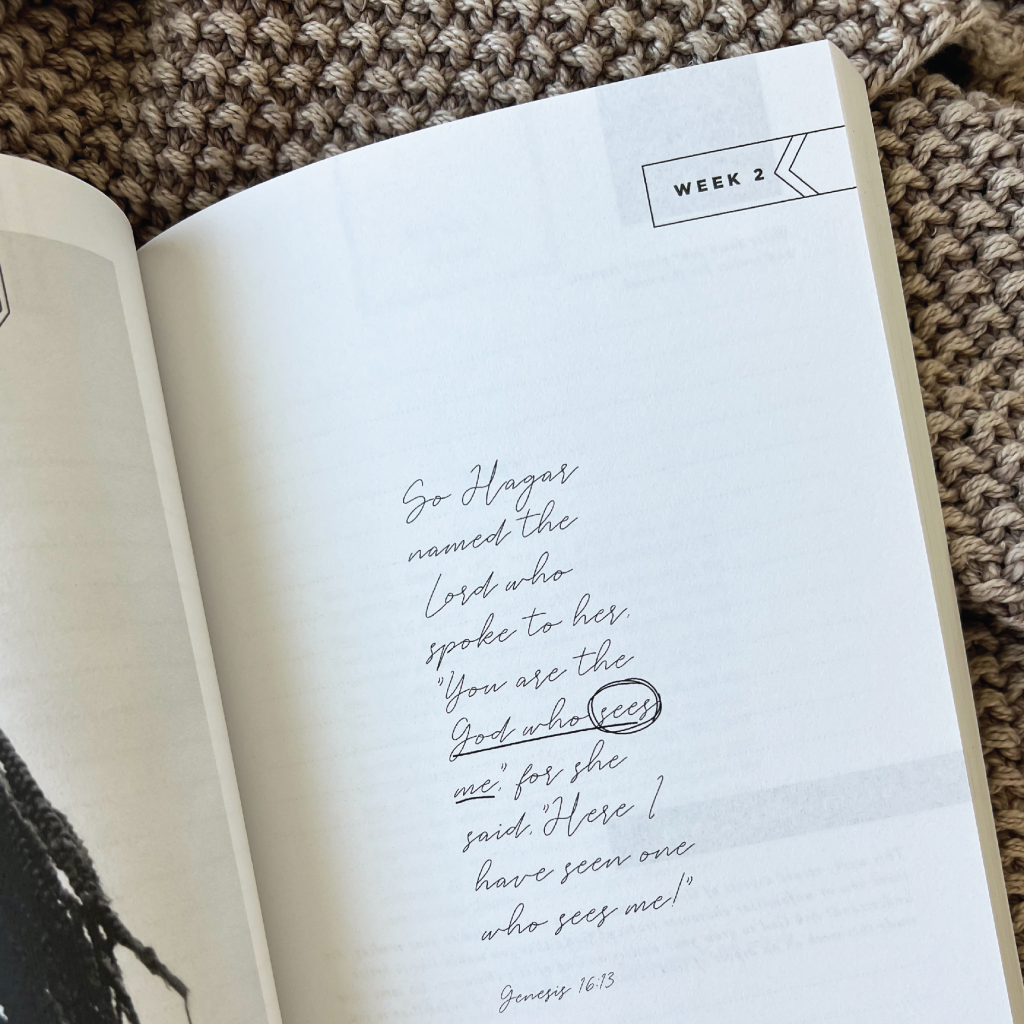 WEEK 2
So Hagar
named the
Lord who
spoke to her,
"You are the
God who sees
me", for she
said, "Here I
have seen one
who sees me!"
Genesis 16:13